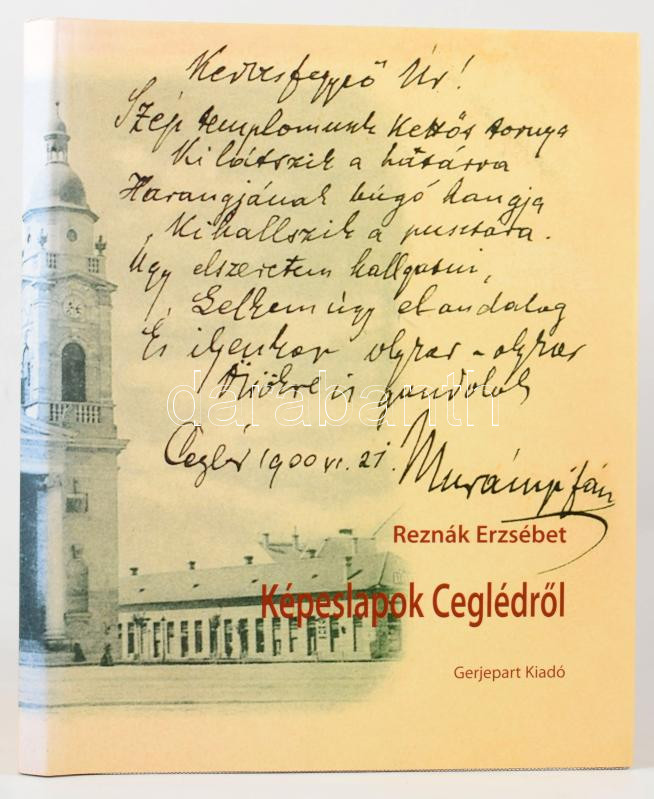 Kedves függő Úr!
Szép templomunk kettős tornya
Kilátszik a határra
Harangjának búgó hangja
Kihallszik a pusztára.
Úgy elszeretem hallgatni,
Lelkem úgy elandalog
És ilyenkor olykor-olykor
is gondolok
Cegléd 1900 VI. 21.
Murányi Ján
darabanth
Reznák Erzsébet
Képeslapok Ceglédről
Gerjepart Kiadó